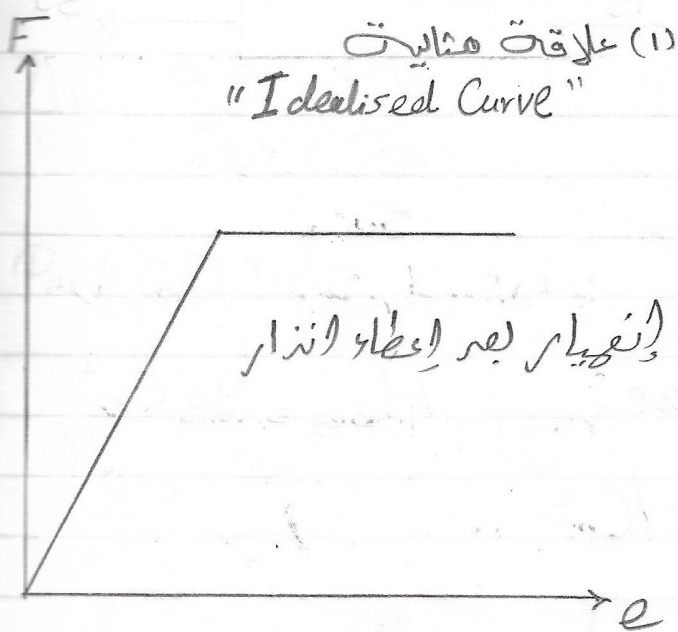 F
(1) علاقة مثالية
"Idealised Curve"
إنهيار بعد إعطاء انذار
e